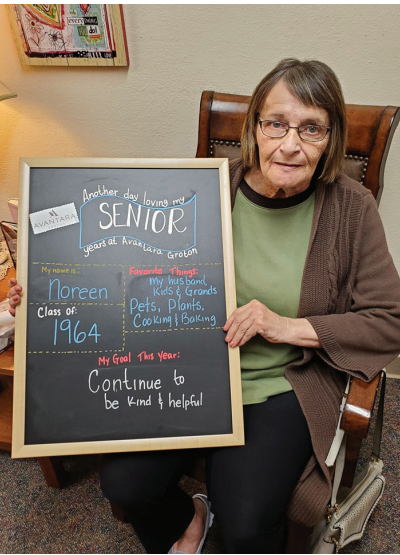 everything
do!
Another day loving my
SENIOR
years at Avantara Groton
AVANTARA
My name is:
Noreen
Class of:
1964
Favorite Things:
my husband,
Kids & Grands
Pets, Plants,
Cooking & Baking
My Goal This Year:
Continue to
be kind & helpful